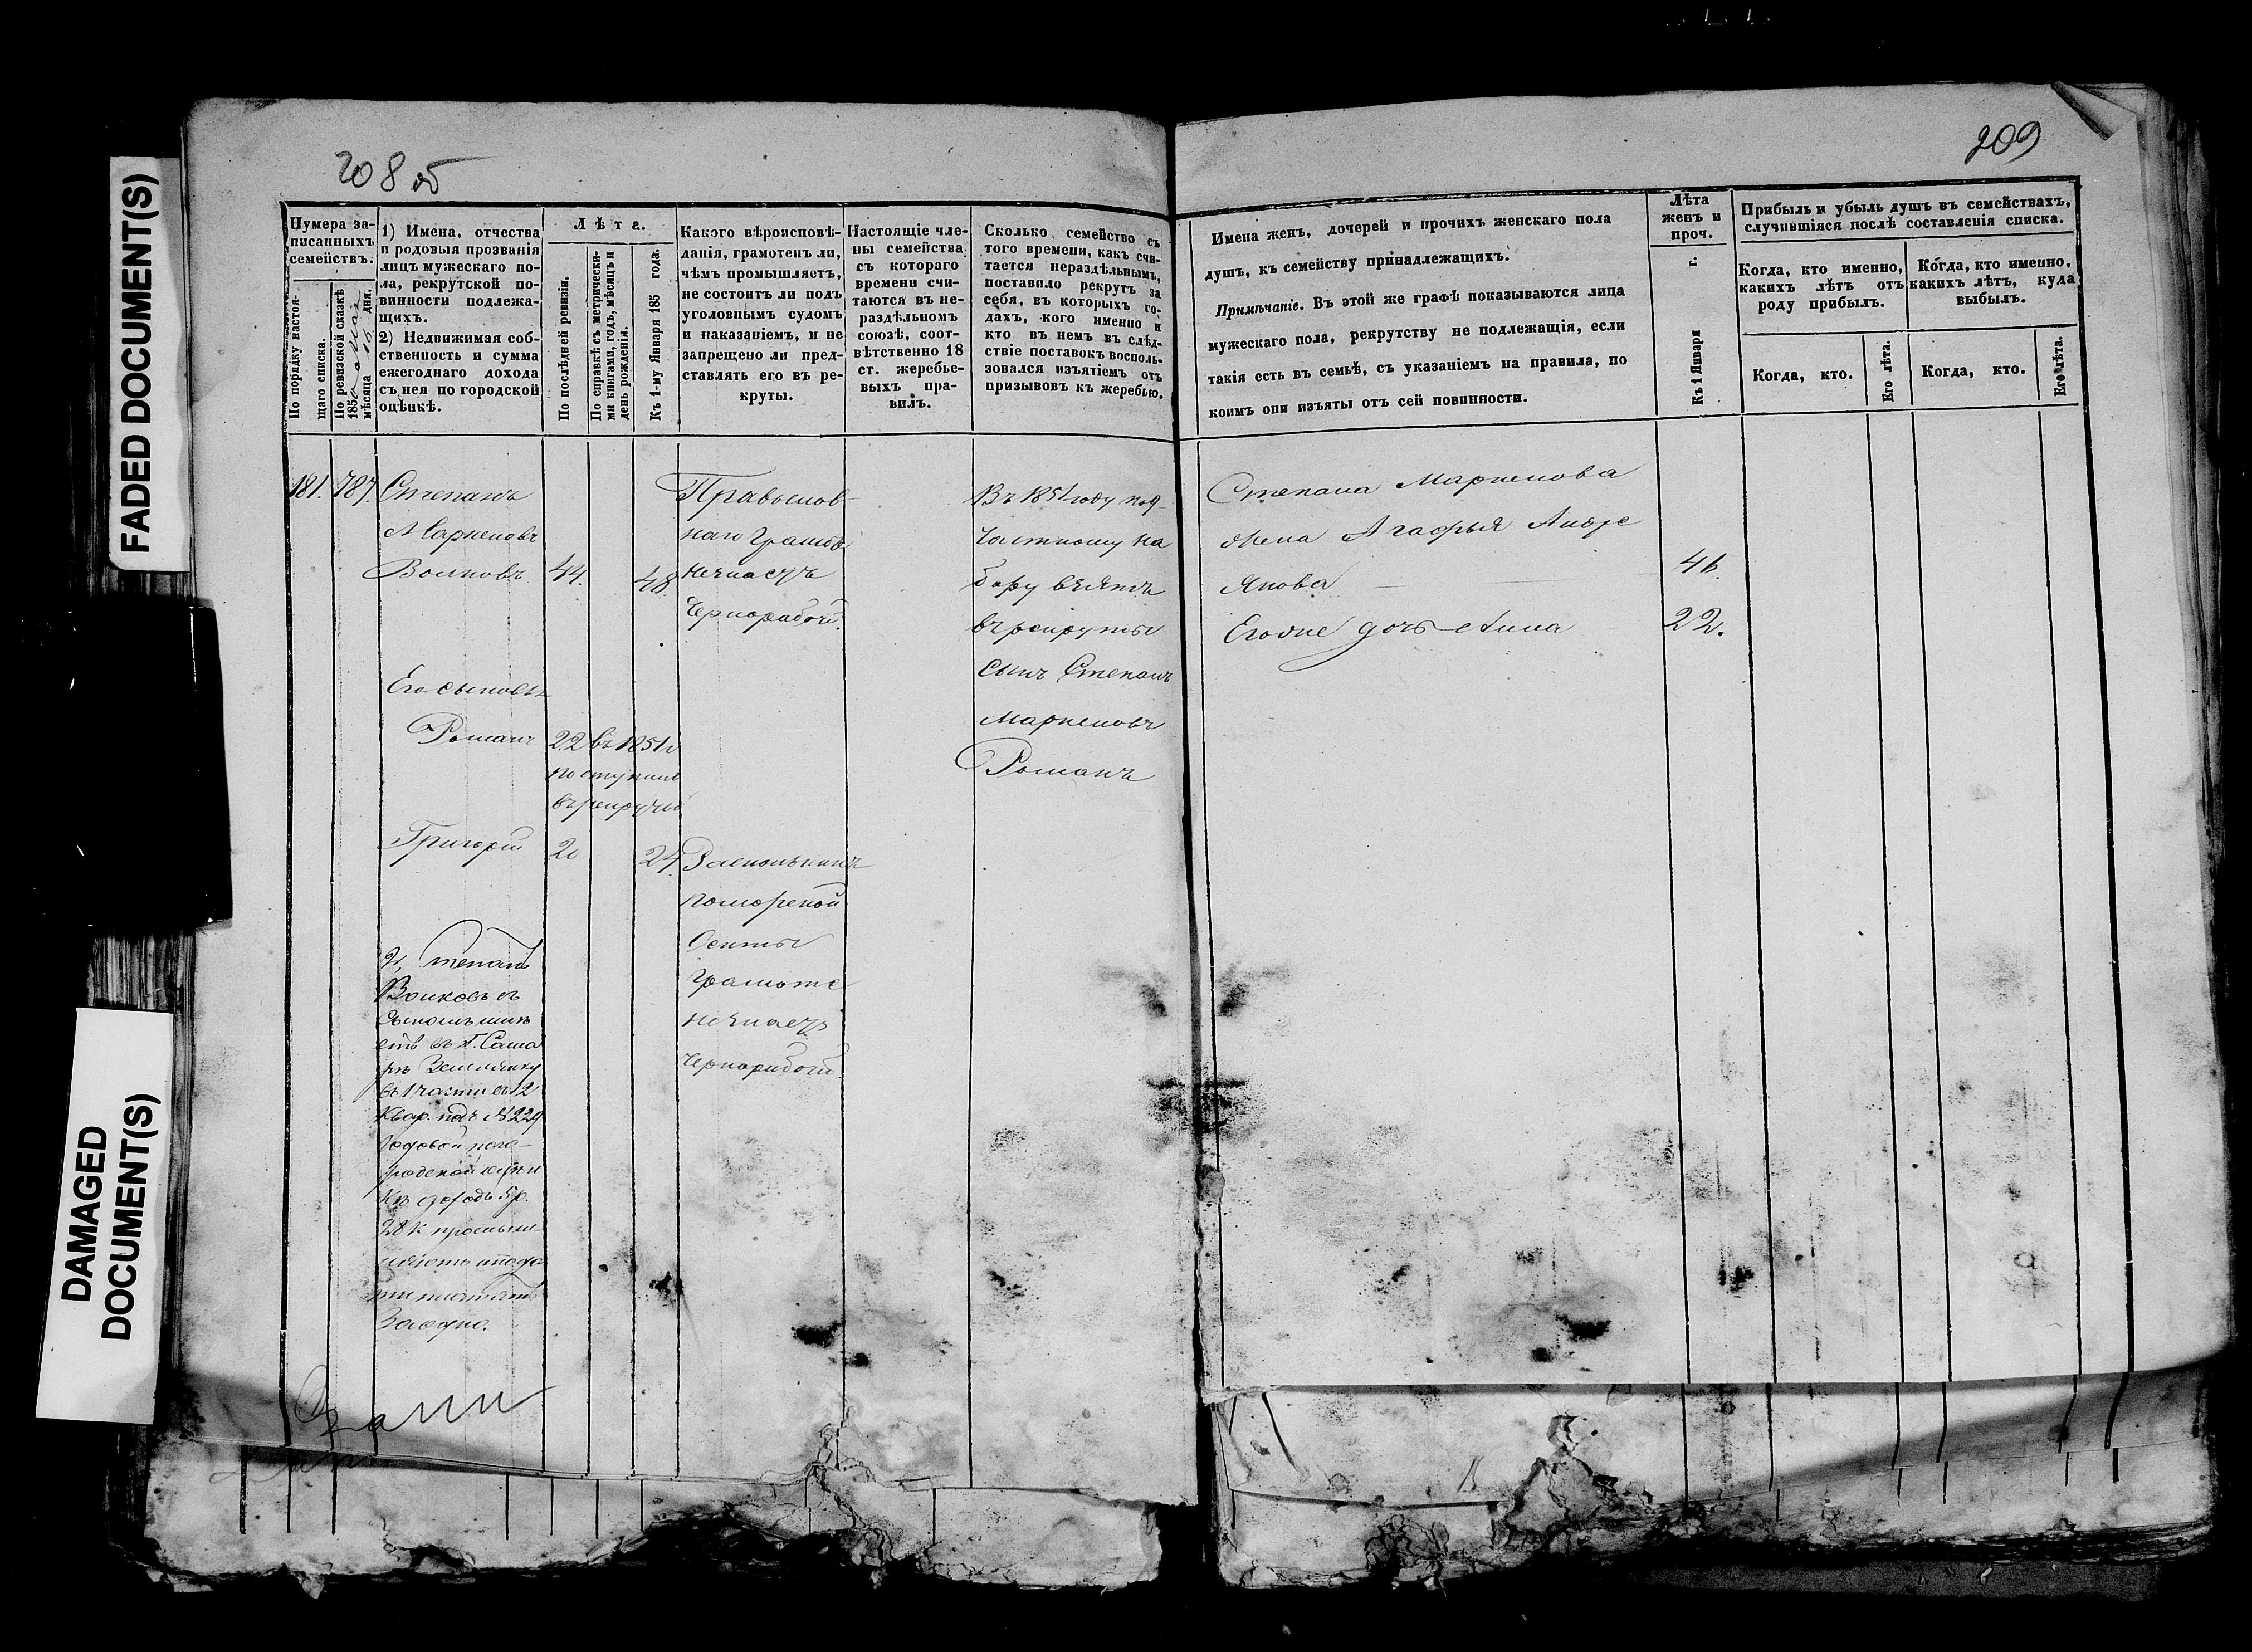 FADED DOCUMENT(S)
DAMAGED
DOCUMENT(S)
208 об
Нумера за-
писанныхъ
семействъ.
По порядку настоя-
щаго списка.
По ревизской сказкѣ
1850
мѣсяца 16 дня.
1) Имена, отчества
и родовыя прозванія
лицъ мужескаго по-
ла, рекрутской по-
винности подлежа-
щихъ.
2) Недвижимая соб-
ственность и сумма
ежегоднаго дохода
съ нея по городской
оцѣнкѣ.
Лѣта.
По послѣдней ревизіи.
По справкѣ съ метрически-
ми книгами, годъ, мѣсяцъ и
день рожденія.
Къ 1-му Января 185 года.
Какого вѣроисповѣ-
данія, грамотенъ ли,
чѣмъ промышляетъ,
не состоитъ ли подъ
уголовнымъ судомъ
и наказаніемъ, и не
запрещено ли пред-
ставлять его въ ре-
круты.
Настоящіе чле-
ны семейства
съ котораго
времени счи-
таются въ не-
раздѣльномъ
союзѣ, соот-
вѣтственно 18
ст. жеребье-
выхъ пра-
вилъ.
Сколько семейство съ
того времени, какъ счи-
тается нераздѣльнымъ,
поставило рекрутъ за
себя, въ которыхъ го-
дахъ, кого именно и
кто въ немъ въ слѣд-
ствіе поставокъ восполь-
зовался изъятіемъ отъ
призывовъ къ жеребью.
181. 787. Степанъ
Маркеловъ
Волковъ 44. 48
Православ-
наго Грамоте
незнаетъ
Чернорабоч.
Въ 1851 году по 9
Частному на
бору взятъ
въ рекруты
сынъ Степанъ
Маркеловъ
Романъ
Его сыновья
Романъ 22 въ 1851 г
поступилъ
въ рекруты
Григорій 20 24
поморской
Секты
грамоте
незнаетъ
Чернорабочій.
2, Степанъ
Волковъ съ
Сыномъ имѣ
етъ въ г. Сама
рѣ Землянку
въ 1 части въ 12
Квар. подъ № 229
28 к
Заодно.
209
Имена женъ, дочерей и прочихъ женскаго пола
душъ, къ семейству принадлежащихъ.
Примѣчаніе. Въ этой же графѣ показываются лица
мужескаго пола, рекрутству не подлежащія, если
такія есть въ семьѣ, съ указаніемъ на правила, по
коимъ они изъяты отъ сей повинности.
Лѣта
женъ и
проч.
Къ 1 Января г.
Прибыль и убыль душъ въ семействахъ,
случившіяся послѣ составленія списка.
Когда, кто именно,
какихъ лѣтъ отъ
роду прибылъ.
Когда, кто именно,
какихъ лѣтъ, куда
выбылъ.
Когда, кто.
Его лѣта.
Когда, кто.
Его лѣта.
Степана Маркелова
жена Агафья Андре
янова 46.
Егоже дочь Анна 22.